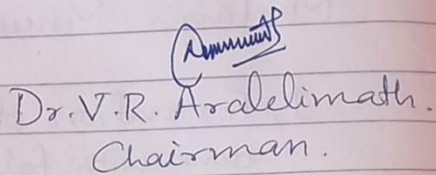 Dr. V. R. Aralelimath.
Chairman.